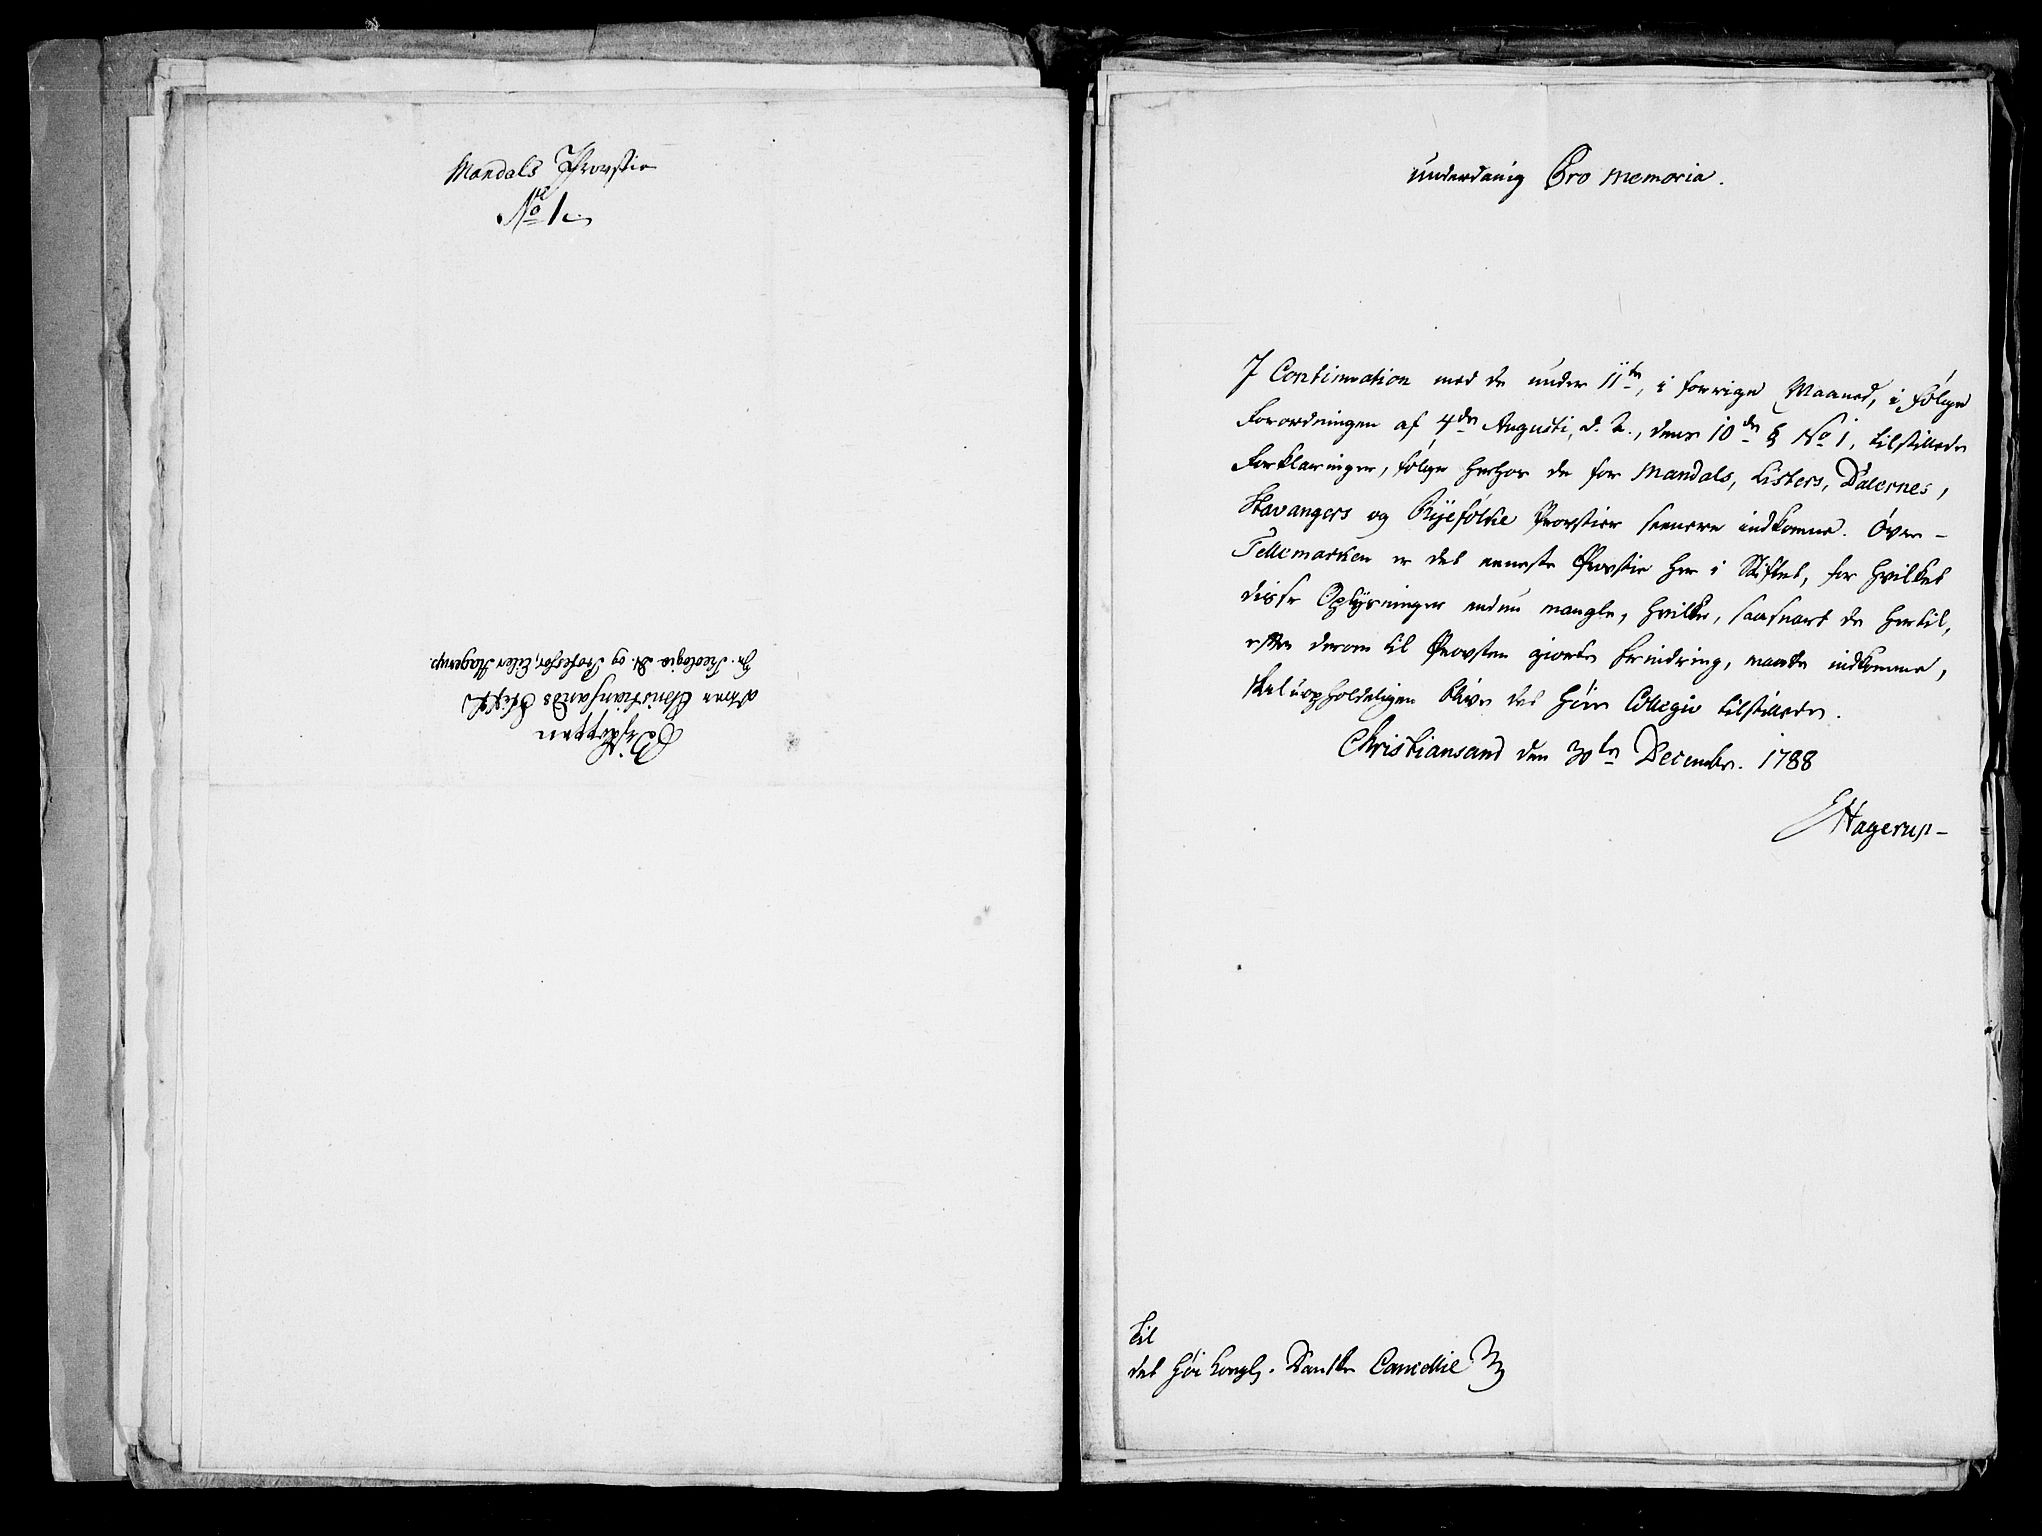 Mandals Provstie
No 1.
Bishoppen
over Christiansands Stift
Hr. Teologiæ D. og Professor, Eiler Hagerup.
underdanig Pro memoria.
I Continuation med de under 11te, i forrige Maaned, i følge
Forordningen af 4de Augusti, d. A., dens 10de § No 1, tilstillede
Forklaringer, følger herhos de for Mandals, Listers, Dalernes,
Stavangers og Ryefølke Provstier senere indkomne. Over-
Tellemarken er det eneste Provstie her i Stiftet, for hvilket
disse Oplysninger endnu mangle, hvilke, saasnart de hertil,
efter derom til Provsten giorte Erindring, maatte indkomme,
skal uopholdeligen blive det høie Collegio tilstillede.
Christiansand den 30te Decembr. 1788
EHagerup
Til
det høi kongl. Danske Cancellie